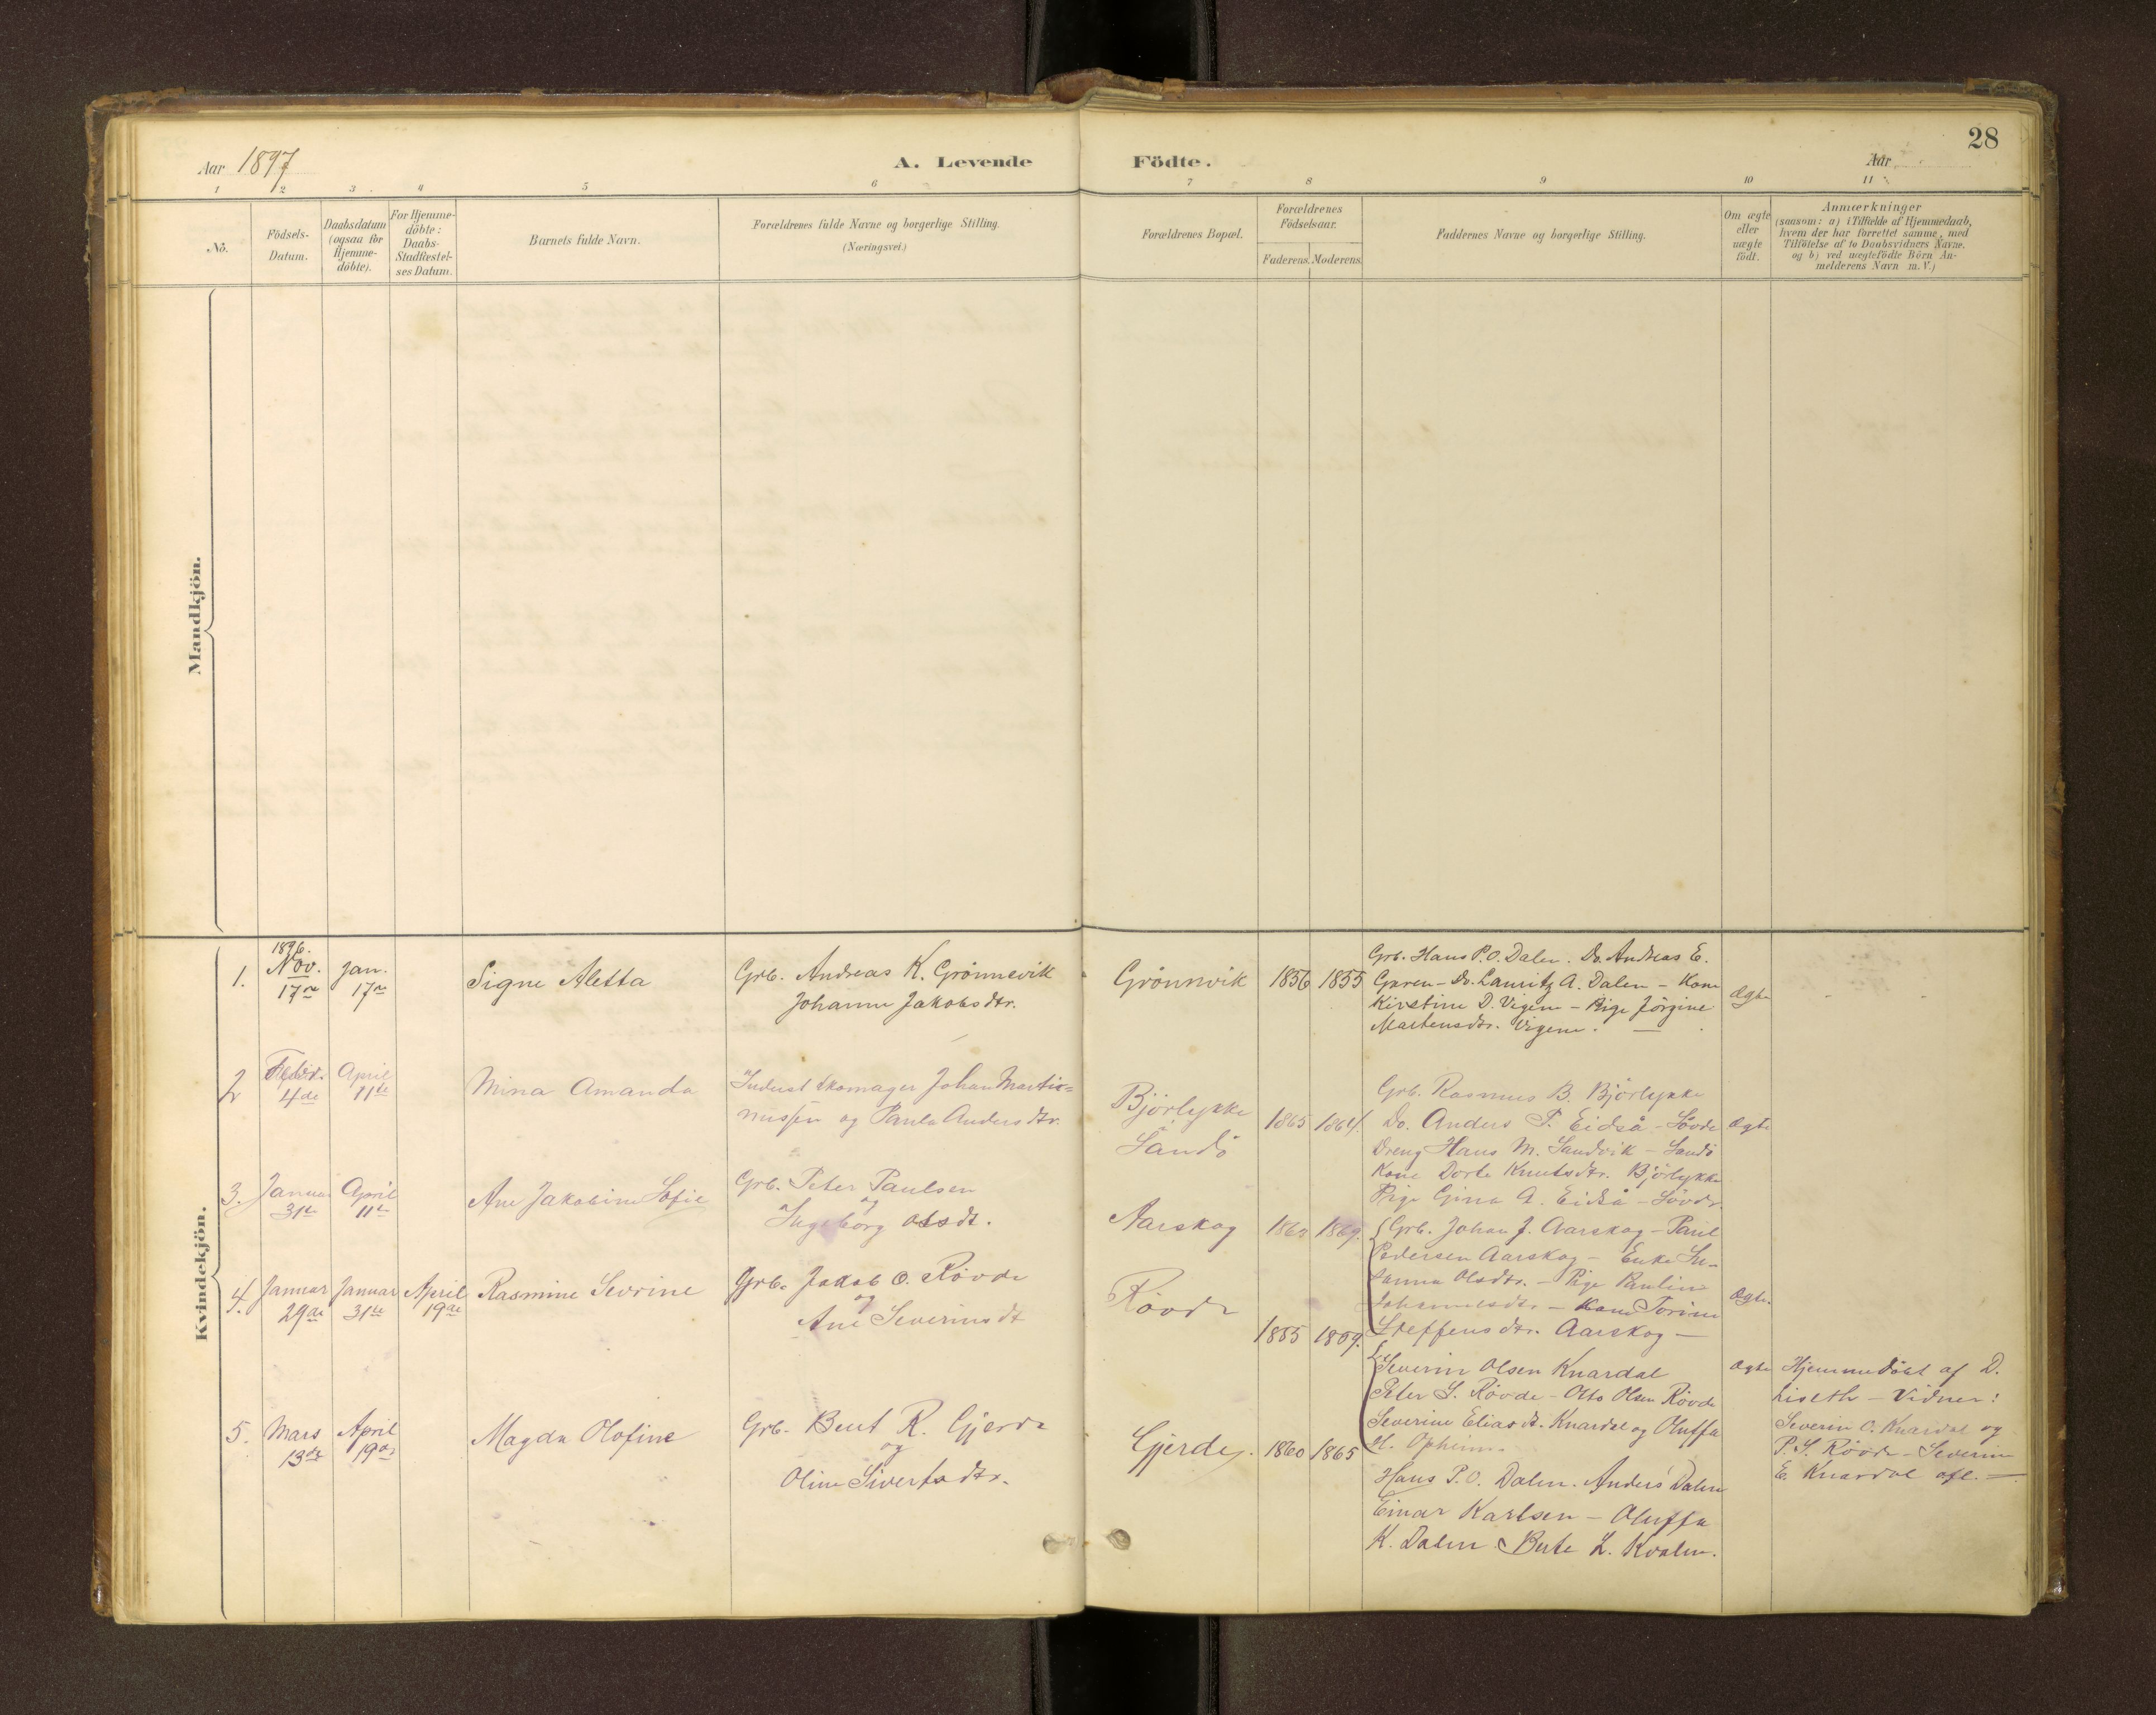 28
Aar 1897
A. Levende Födte.
Aar
1 2 3 4 5 6 7 8 9 10 11
Nö.
Födsels-
Datum.
Daabsdatum
(ogsaa for
Hjemme-
döbte).
For Hjemme-
döbte:
Daabs-
Stadfæstel-
ses Datum.
Barnets fulde Navn.
Forældrenes fulde Navne og borgerlige Stilling.
(Næringsvei.)
Forældrenes Bopæl.
Forældrenes
Födselsaar.
Faderens. Moderens.
Faddernes Navne og borgerlige Stilling.
Om ægte
eller
uægte
födt.
Anmærkninger
(saasom: a) i Tilfælde af Hjemmedaab,
hvem der har forrettet samme, med
Tilföielse af to Daabsvidners Navne.
og b) ved uægtefödte Börn An-
melderens Navn m.V.)
Mandkjön.
Kvindekjön.
1.
1896.
Nov.
17de
Jan.
17de
Signe Aletta
Grb. Andreas K. Grönnevik
Johanne Jakobsdtr.
Grönnvik
1856 1855
Grb. Hans P.O. Dalen. Do. Andreas E.
Garen - Do. Lauritz A. Dalen - Kone
Kirstine D. Vigen - Pige Jörgine
Martensdtr. Vigene. —
Ægte
2
Febr.
4de
April
11te
Mina Amanda
Inderst Skomager Johan Marti-
nussen og Paula Andersdtr.
Björlykke
Sandö
1865 1864.
Grb. Rasmus B. Björlykke
Do. Anders P. Eidså - Sövde
Dreng Hans M. Sandvik - Sandö
Kone Dorte Knutsdtr. Björlykke
Pige Gina A. Eidså - Sövde.
Ægte
3.
Januar
31te
April
11te
Ane Jakobine Sofie
Grb. Peter Paulsen
og
Ingeborg Olsdt.
Aarskog
1869.
Grb. Johan J. Aarskog - Paul
Pedersen Aarskog - Enke Su-
sanna Olsdtr. - Pige Pauline
Johannesdtr. - Kone Torine
Steffensdtr. Aarskog —
Ægte.
4.
Januar
29de
Januar
31te
April
19de
Rasmine Sevrine
Grb. Jakob O. Rövde
og
Ane Severinsdt
Rövde
1855 1859.
Severin Olsen Knardal
Peter S. Rövde - Otto Olsen Rövde
Severine Eliasdt. Knardal og Oluffa
H. Opheim.
Ægte
Hjemmedöbt af D.
Liseth - Vidner:
Severin O. Knardal og
P. S. Rövde - Severine
E. Knardal afl. —
5.
Mars
13de
April
19de
Magda Olofine
Grb. Bent R. Gjerde
og
Oline Sivertsdtr.
Gjerde.
1860 1865
Hans P.O. Dalen. Anders Dalen
Einar Karlsen - Oluffa
K. Dalen. Berte L. Kvalen.